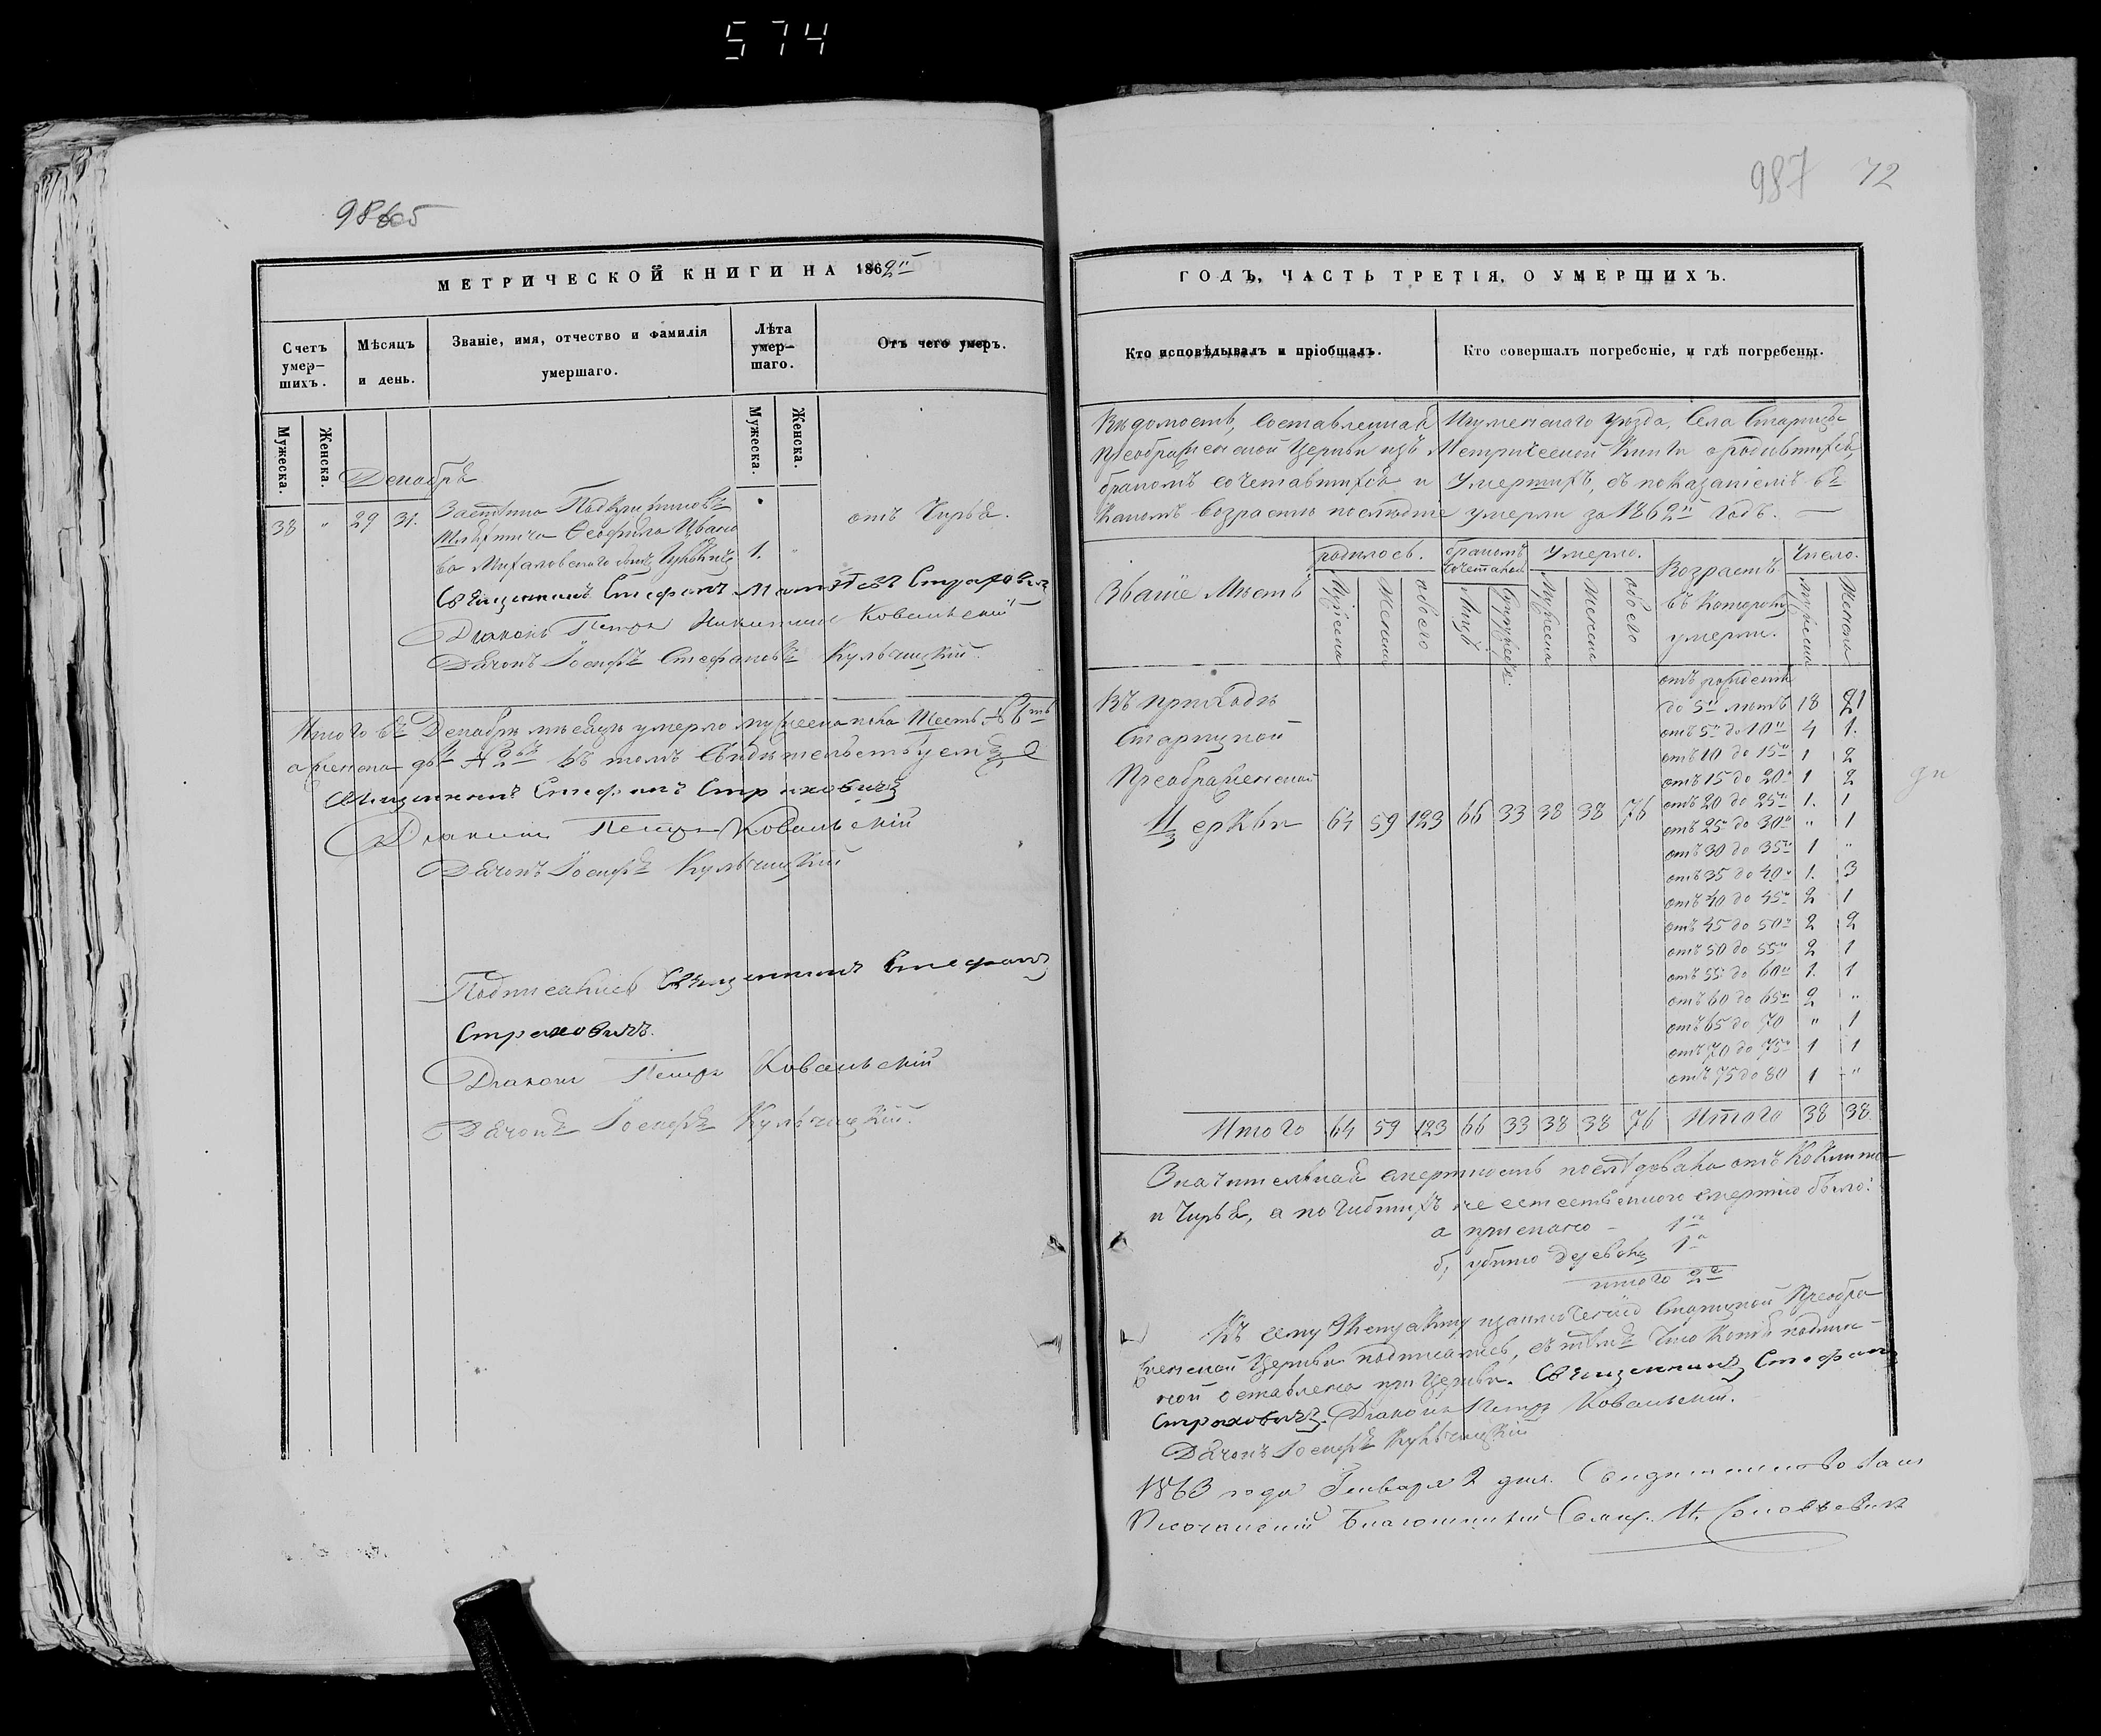 574
986
987 72
МЕТРИЧЕСКОЙ КНИГИ НА 1862й
Счетъ умер-
шихъ.
Мѣсяцъ
и день.
Званіе, имя, отчество и фамилія
умершаго.
Лѣта
умер-
шаго.
Отъ чего умеръ.
Мужеска.
Женска.
Мужеска.
Женска.
Декабрь
38 " 29 31.
Застѣнка Подкулинковъ
Шляхтича Ѳеофила Ивано
ва Михаловскаго сынъ 1. " отъ Чирья.
Священникъ Стефанъ Страховичъ
Діаконъ Петръ Никитинъ Ковальскій
Дьячокъ Іосифъ Стефановъ Кульчицкій.
Итого въ Декабрѣ мѣсяцѣ умерло мужеска пола Шесть - 6ть
а женска двѣ 2вѣ въ томъ Свидѣтельствуемъ
Священникъ Стефанъ Страховичъ
Діаконъ Петръ Ковальскій
Дьячокъ Іосифъ Кульчицкій
Подписались Священникъ Стефанъ
Страховичъ.
Діаконъ Петръ Ковальскій
Дьячокъ Іосифъ Кульчицкій.
ГОДЪ, ЧАСТЬ ТРЕТІЯ, О УМЕРШИХЪ.
Кто исповѣдывалъ и пріобщалъ.
Кто совершалъ погребеніе, и гдѣ погребены.
Вѣдомость, Составленная Игуменскаго уѣзда, Села Старицы
Преображенской Церкви изъ Метрической Книги о родившихся,
бракомъ сочетавшихся и Умершихъ, съ показаніемъ въ
Какомъ возрастѣ послѣдніе умерли за 1862й Годъ. —
Званіе Мѣстъ
родилось.
бракомъ
сочетаной
Умерло.
Возрастъ
въ Которомъ
умерли.
Число.
Мужеска Женска обоего Лицъ Супружъ. Мужеска Женска обоего Мужеска Женска
Въ приходѣ
Старицкой
Преображенской
Церкви 64 59 123 66 33 38 38 76
отъ рожденія
до 5и лѣтъ 18 21
отъ 5и до 10и 4 1.
отъ 10 до 15и 1 2
отъ 15 до 20и 1 2
отъ 20 до 25и 1. 1
отъ 25 до 30и " 1
отъ 30 до 35и 1 "
отъ 35 до 40и 1. 3
отъ 40 до 45и 2 1
отъ 45 до 50и 2 2
отъ 50 до 55и 2 1
отъ 55 до 60и 1. 1
отъ 60 до 65и 2 "
отъ 65 до 70 " 1
отъ 70 до 75и 1 1
отъ 75 до 80 1 "
Итого 64 59 123 66 33 38 38 76 Итого 38 38.
Значительная смертность послѣдовала отъ Коклюша
и Чирья, а погибшихъ не естественною смертію было:
а приспано - 1
б, убито деревомъ 1
итого 2е
Къ сему Экстракту причтъ Старицкой Преобра
женской Церкви подписались, съ тѣмъ что Копія подлин-
ной оставлена при Церкви. Священникъ Стефанъ
Страховичъ. Діаконъ Петръ Ковальскій.
Дьячокъ Іосифъ Кульчицкій
1863 года Генваря 2 дня. Свидѣтельствовалъ
Благочинный